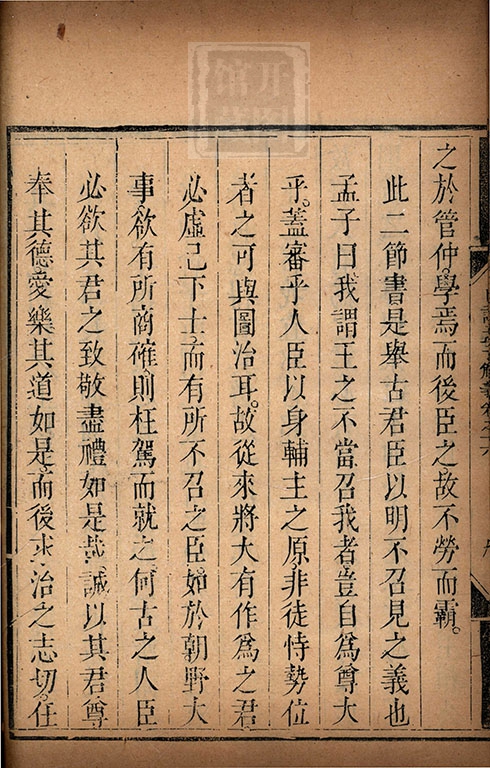 之於管仲。學焉而後臣之故不勞而霸。
此二節書是舉古君臣以明不召見之義也
孟子曰我謂王之不當召我者豈自爲尊大
乎。蓋審乎人臣以身輔主之原非徒恃勢位
者之可與圖治耳。故從來將大有作爲之君
必虛己下士而有所不召之臣。如於朝野大
事欲有所商確。則枉駕而就之。何古之人臣
必欲其君之致敬盡禮如是哉。誠以其君尊
奉其德。愛樂其道如是。而後求治之志切。任